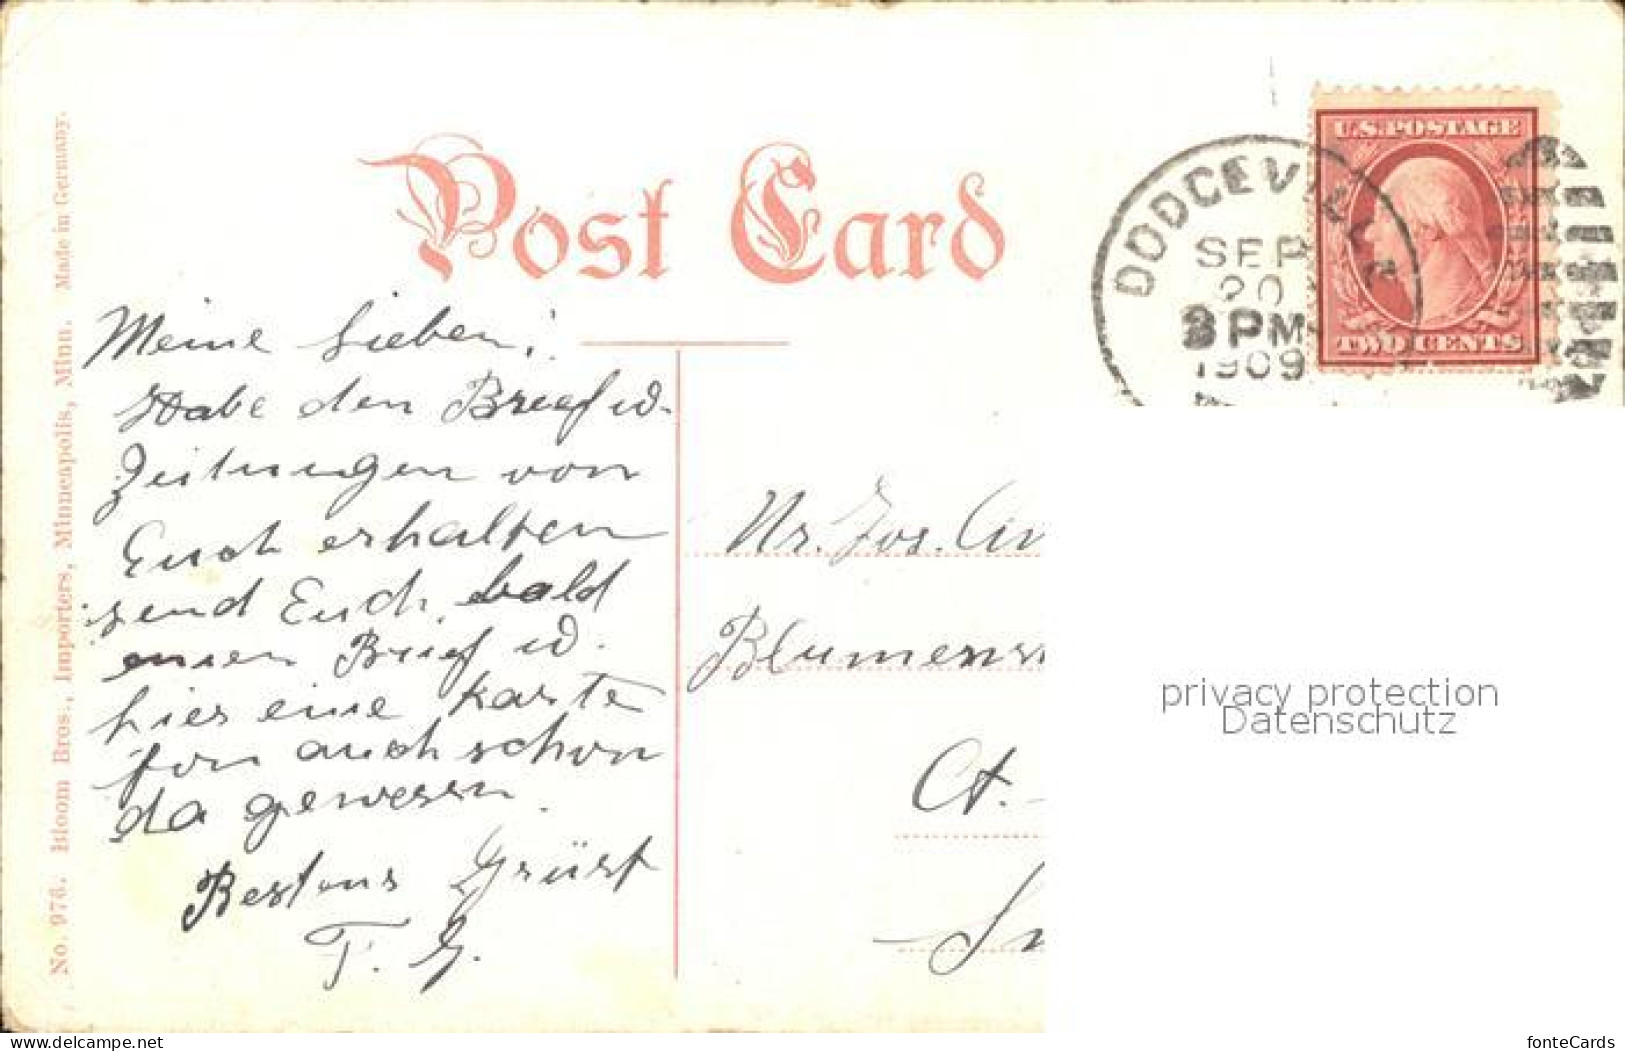 No. 978. Bloom Bros., Importers, Minneapolis, Minn. Made in Germany.
Post Card
U.S. POSTAGE
TWO CENTS
DODGEVILLE
SEP
20
3 PM
1909
Meine Lieben!
Habe den Brief u.
Zeitungen von
Euch erhalten
send Euch bald
einen Brief u.
hier eine Karte
von auch schon
da gewesen.
Bestens Grüsst
F. G.
Mr. Jos.
Blumens
Ct.
privacy protection
Datenschutz
www.delcampe.net
fonteCards